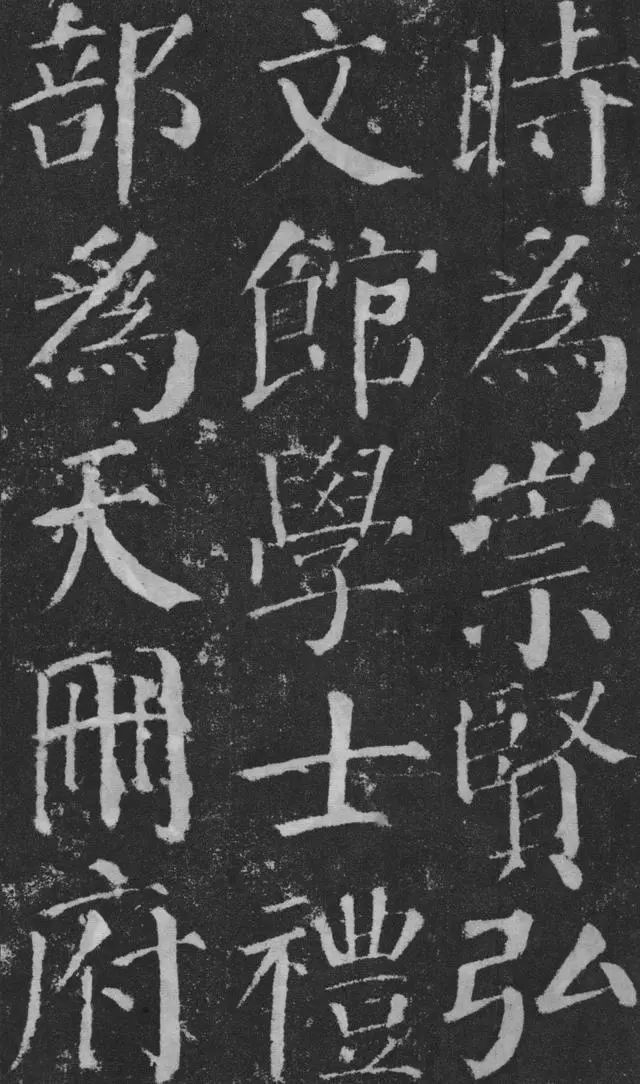 時為崇賢弘
文館學士禮
部爲天冊府